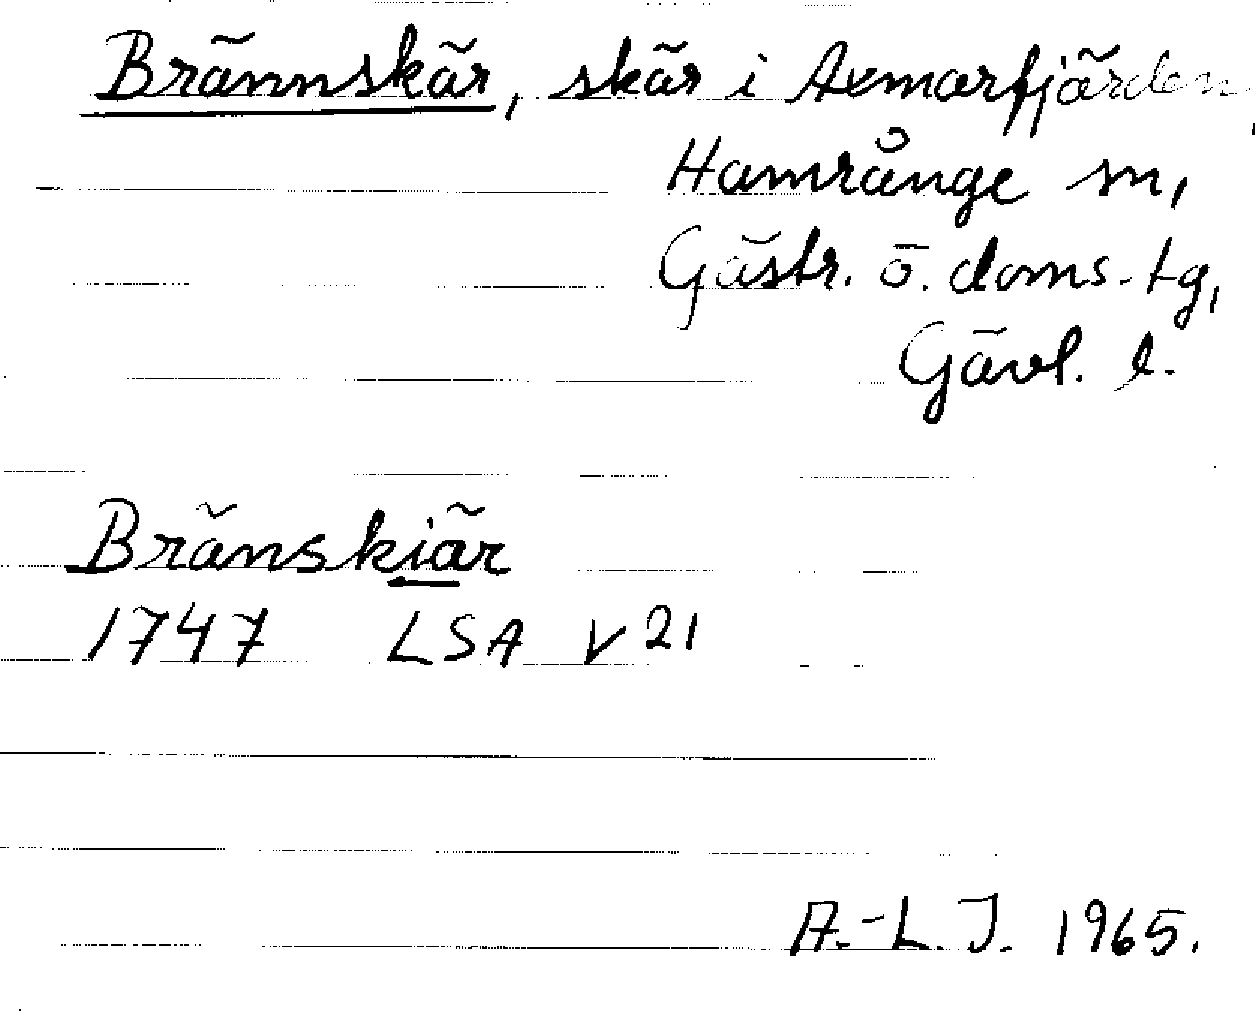 Brännskär, skär i Axmarfjärden,
Hamrånge sn,
Gästr. ö. doms. tg,
Gävl. l.
Bränskiär
1747 LSA V 21
A.-L. J. 1965.